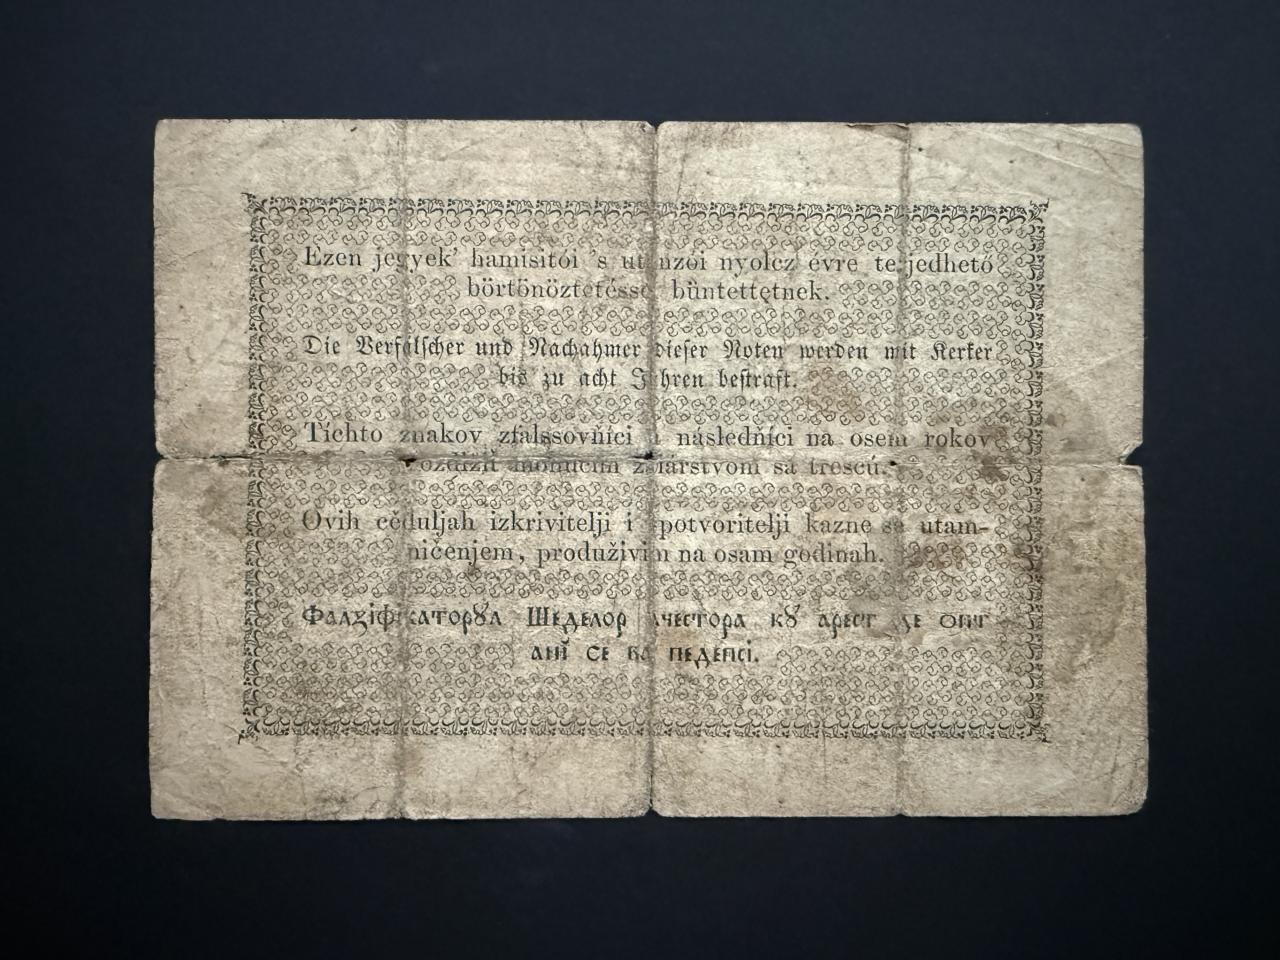 Ezen jegyek' hamisitói 's utánzói nyolcz évre terjedhető
börtönöztetéssel bùntettętnek.
Die Verfälscher und Nachahmer dieser Noten werden mit Kerker
bis zu acht Jahren bestraft.
Tíchto znakov zfalssovňíci a následňíci na osem rokov
zalárstvom sa trescú.
Ovih cěduljah izkrivitelji i potvoritelji kazne se utam-
ničenjem, produživim na osam godinah.
Фалзіфікаторꙋл Шеделор ачестора кꙋ арест де опт
анĭ се ва педепсі.